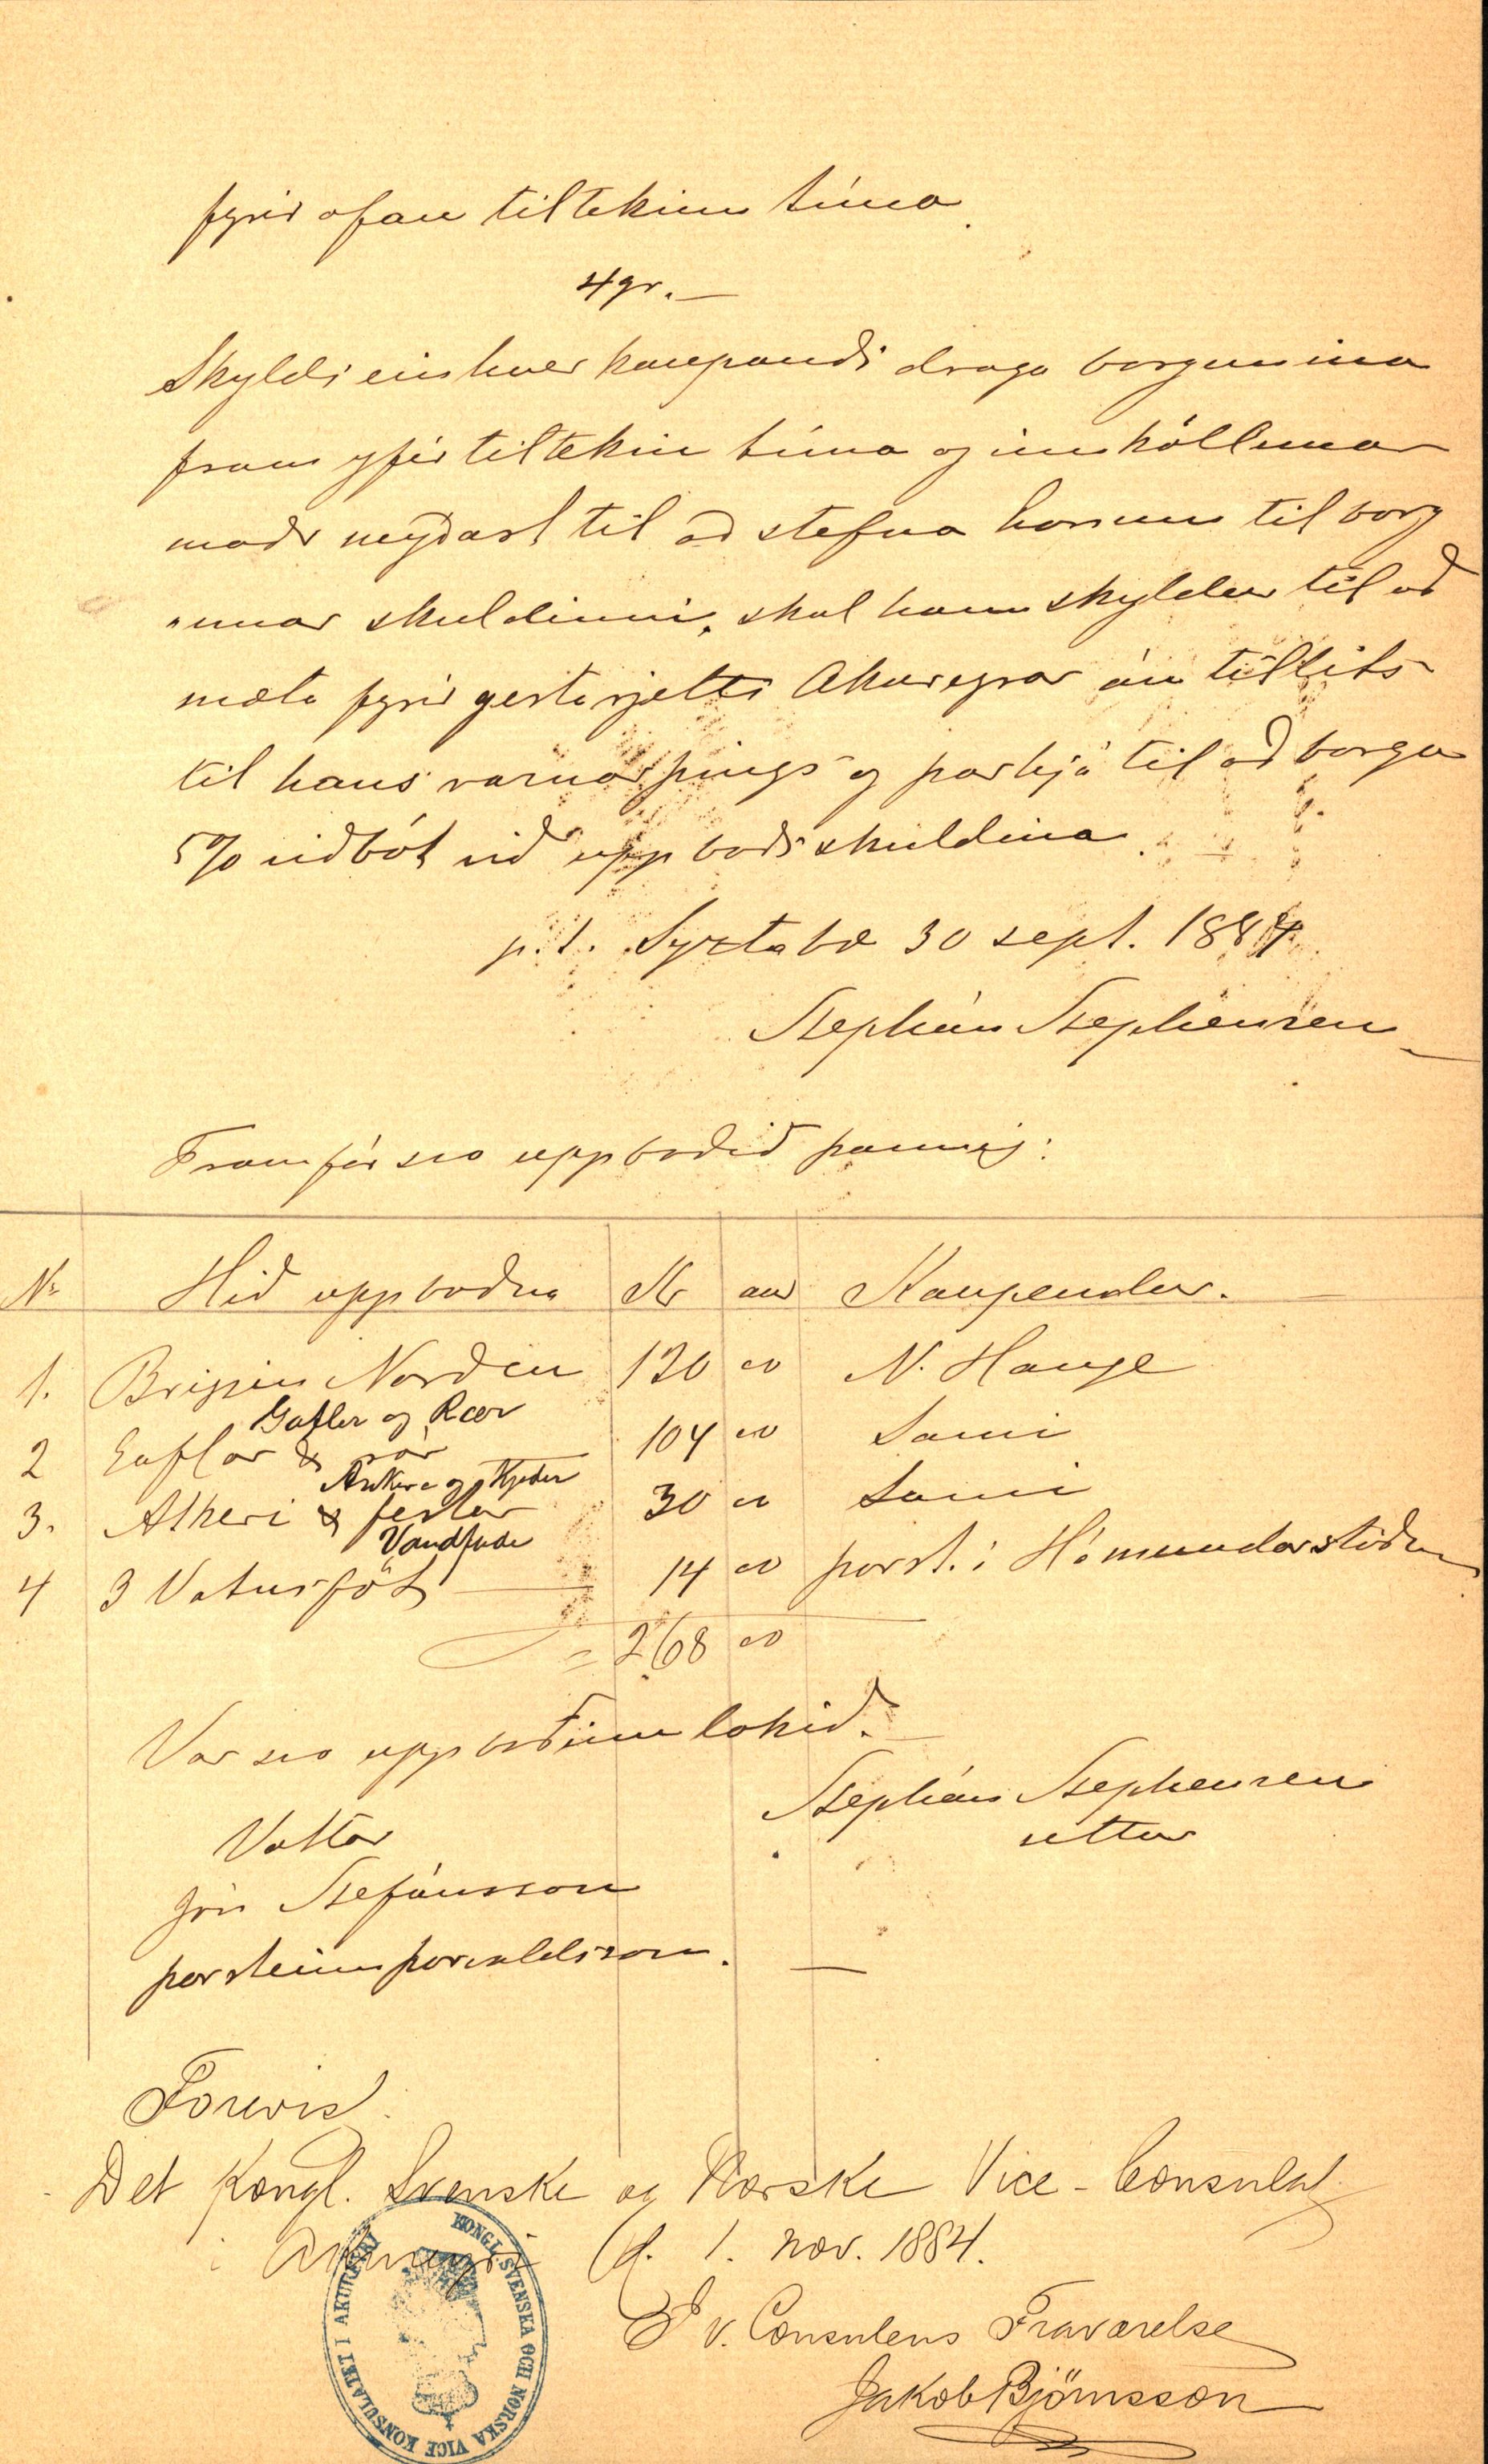 fyrir ofan tiltekinn tíma.
4 gr. —
Skyldi einhver kaupandi draga borgunina
fram yfir tiltekin tíma og innköllunar
maðr neyðast til að stefna honum til borg
„unar skuldinni, skal hann skyldur til að
mæta fyrir gestarjetti Akureyrar án tillits
til hans varnarþings og þarhjá til að borga
5% viðbót við uppboðsskuldina.
p.t. Syztabæ 30 sept. 1884
Stephán Stephensen
Framfór svo uppboðið þannig:
Nr Hið uppboðna Kr aur Kaupendur. —
1. Briggin Norden 120 00 N. Hauge
Gafler og Rær
2 Gaflar & rár 104 00 Sami
Ankere og Kjeder
3. Atkeri & festar 30 00 Sami
Vandfade
4 3 Vatnsföt — 14 00 þorst. í Hámundarstöðum
= 268 00
Var svo uppboðinu lokið. —
Stephán Stephensen
settur
Vottar
Jón Stefánsson
þorsteinn þorvaldsson. —
Forevist.
Det Kongl. Svenske og Norske Vice-Consulat
i Akureyri d. 1. nov. 1884.
E v. Consulens Fraværelse
Jakob Björnsson
KONGL. SVENSKA OCH NORSKA VICE KONSULATET I AKUREYRI